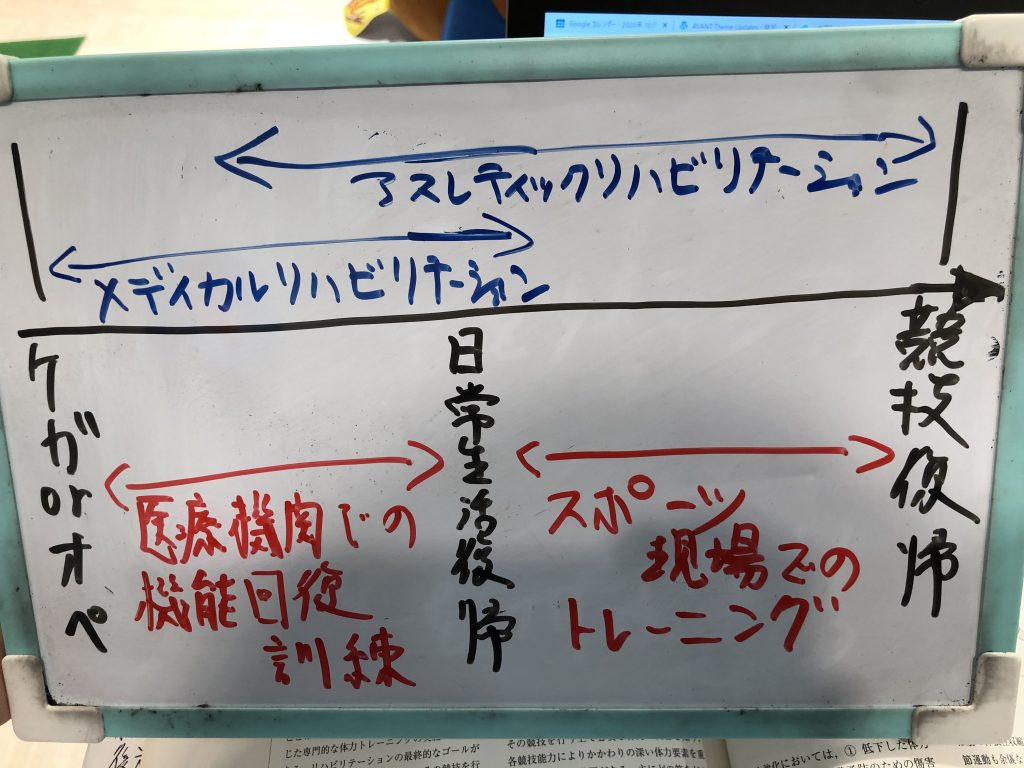 Google カレンダー - 2020年 10月
AVANT Theme Updates - 
アスレティックリハビリテーション
メディカルリハビリテーション
ケガorオペ
日常生活復帰
競技復帰
医療機関での
機能回復
訓練
スポーツ
現場での
トレーニング
じた専門的な体力トレーニングの
リハビリテーションの最終的なゴールが
各競技能力によりかかわりの深い体力要素を重
においては，① 低下した体力
のための傷害
節運動も余儀な